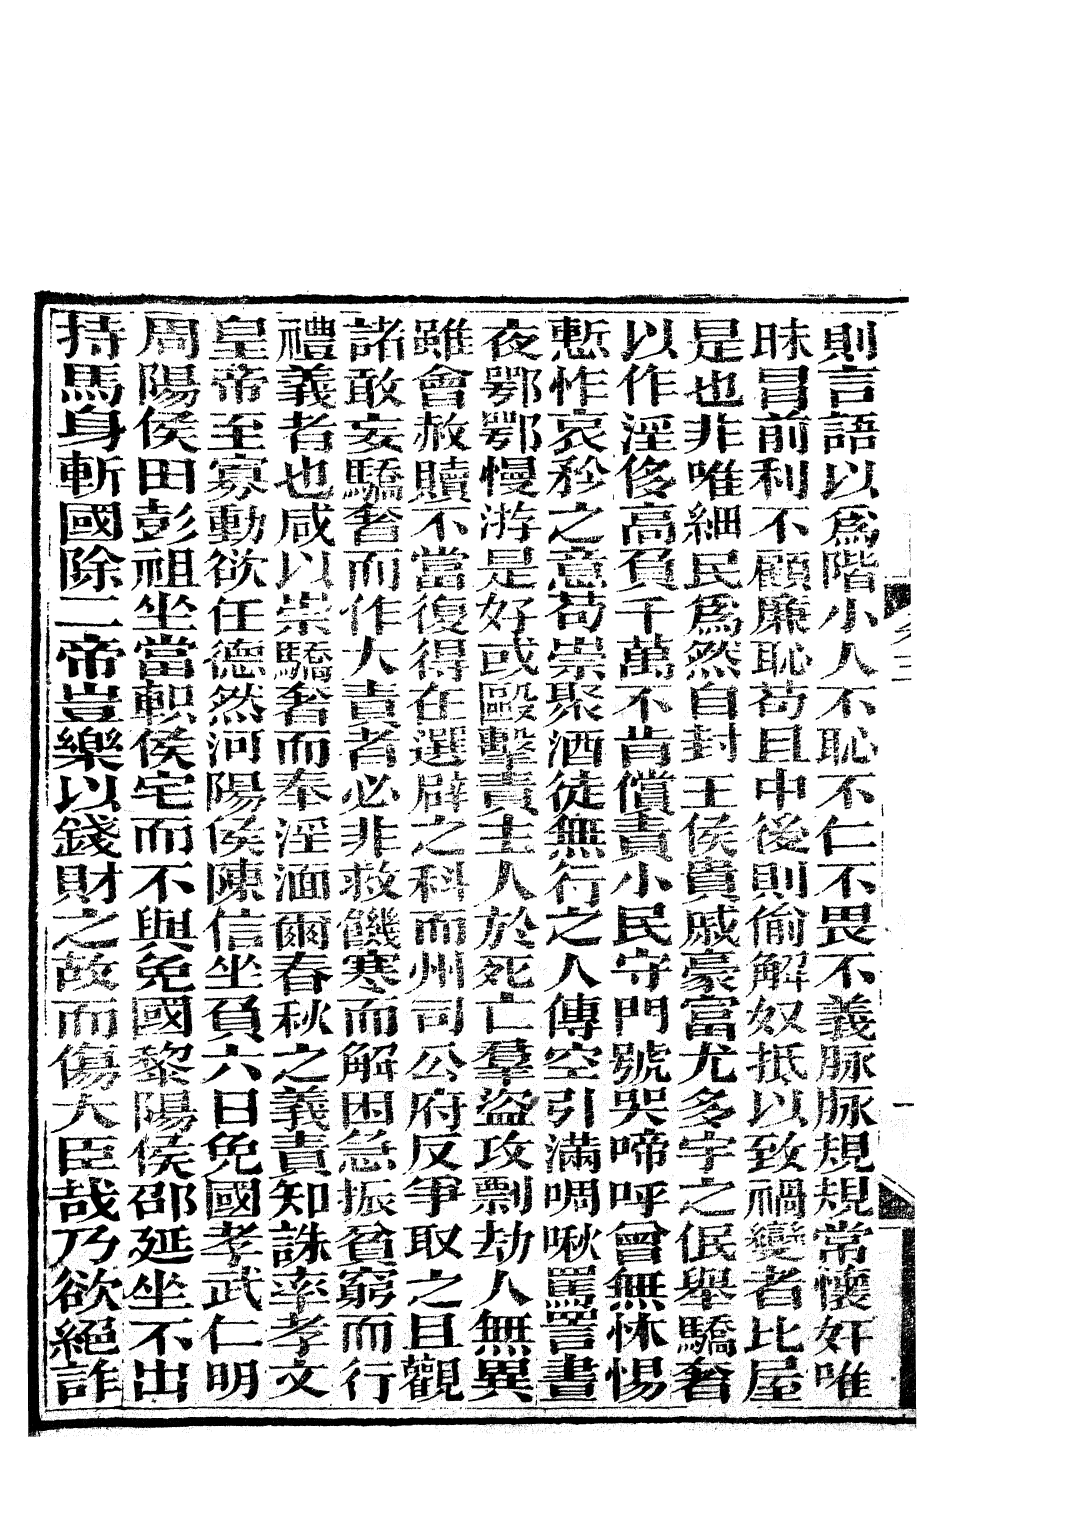 則言語以爲階小人不恥不仁不畏不義脉脉規規常懷奸唯
昧冒前利不顧廉恥苟且中後則偷解奴抵以致禍變者比屋
是也非唯細民爲然自封王侯貴戚豪富尤多字之舉驕奢
以作淫侈高負千萬不肯償責小民守門號哭啼呼曾無怵惕
慙怍哀矜之意苟崇聚酒徒無行之人傳空引滿啁啾罵詈晝
夜鄂鄂慢游是好或毆擊責主人於死亡羣盜攻剽劫人無異
雖會赦贖不當復得在選辟之科而州司公府反爭取之且觀
諸敢妄驕奢而作大責者必非救饑寒而解困急振貧窮而行
禮義者也咸以崇驕奢而奉淫湎爾春秋之義責知誅率孝文
皇帝至寡動欲任德然河陽侯陳信坐負六日免國孝武仁明
周陽侯田彭祖坐當軹侯宅而不與免國黎陽侯邵延坐不出
持馬身斬國除二帝豈樂以錢財之故而傷大臣哉乃欲絕詐